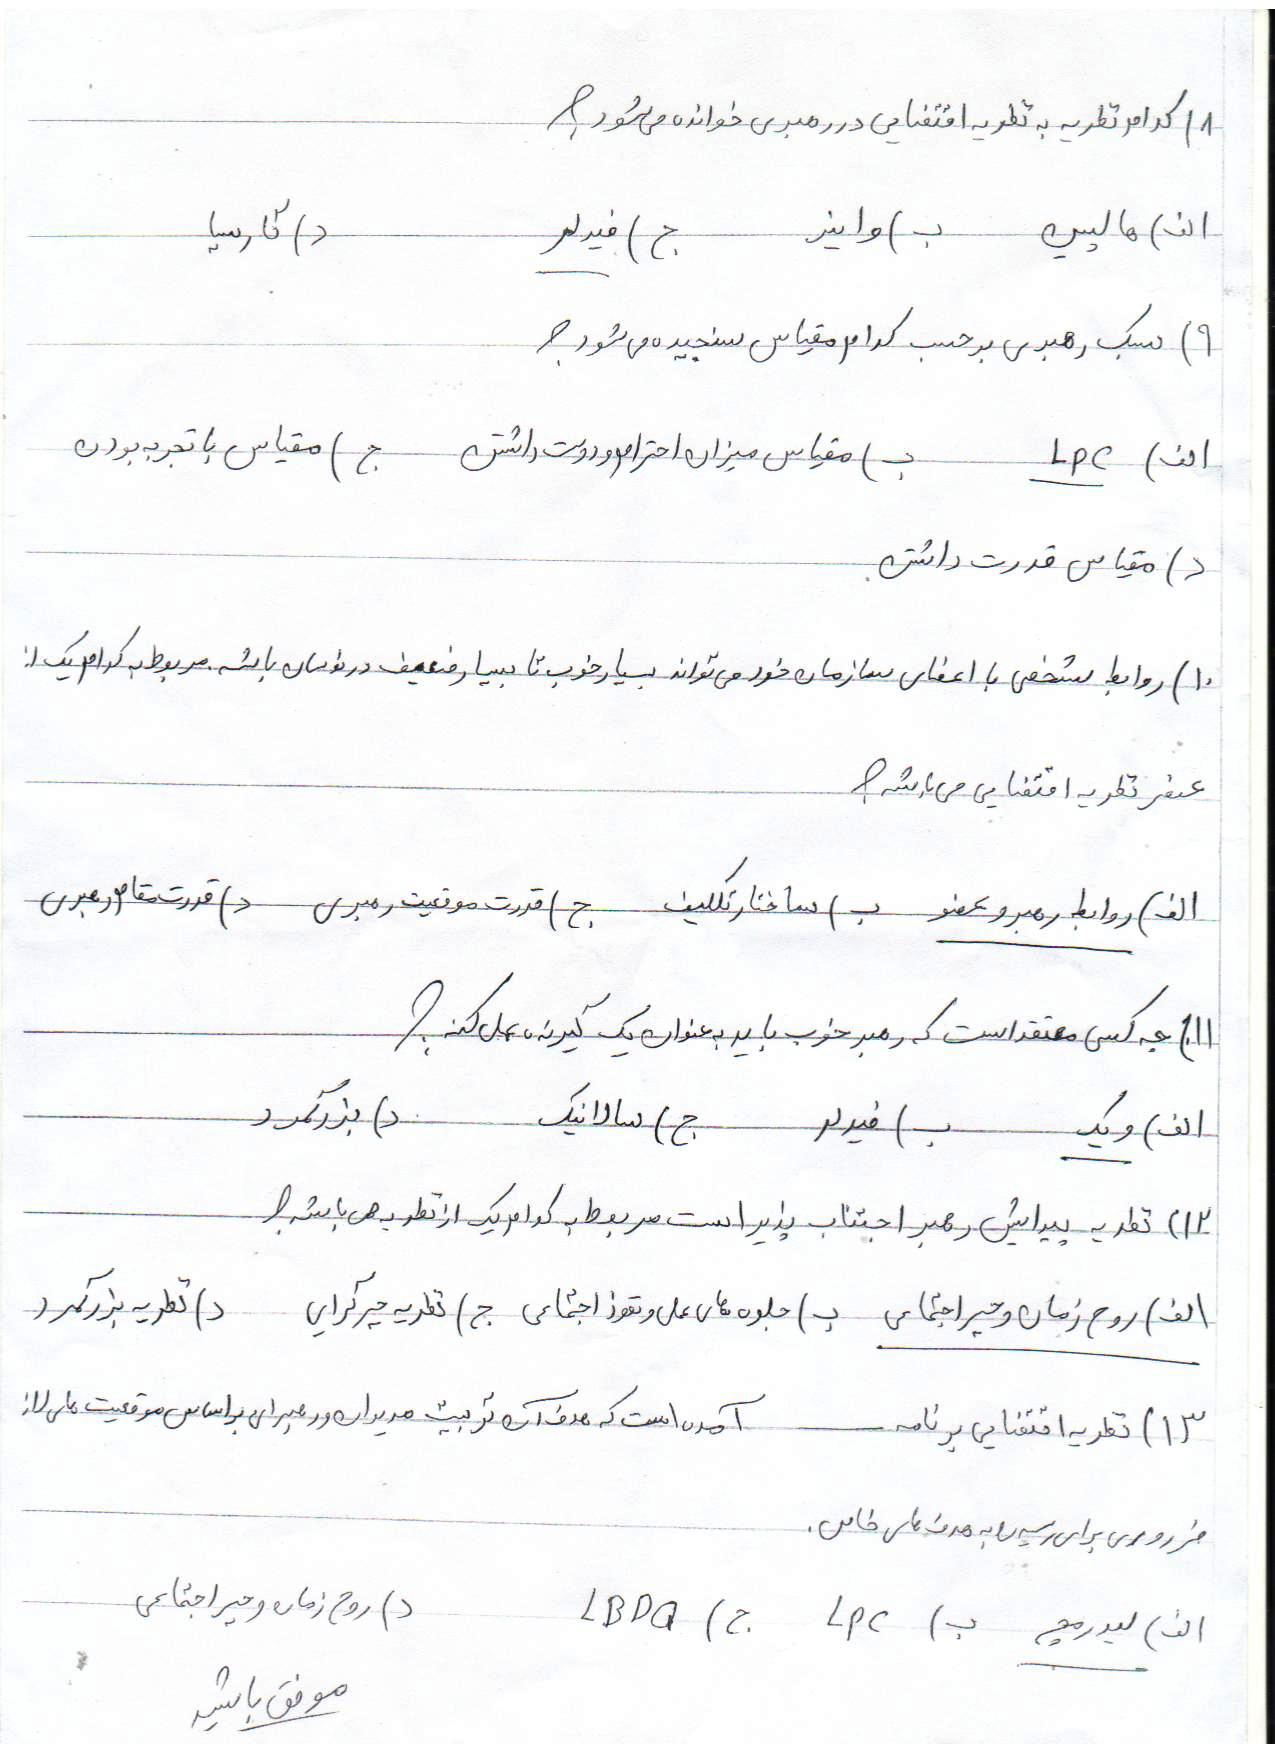 ۸) کدام نظریه به نظریه اقتضایی در رهبری خوانده می‌شود؟
الف) هالپین ب) واینر ج) فیدلر د) گارسیا
۹) سبک رهبری بر حسب کدام مقیاس سنجیده می‌شود؟
الف) LPC ب) مقیاس میزان احترام و دوست داشتن ج) مقیاس با تجربه بودن
د) مقیاس قدرت داشتن
۱۰) روابط شخصی با اعضای سازمان خود می‌تواند بسیار خوب تا بسیار ضعیف در نوسان باشد. مربوط به کدام یک از
عنصر نظریه اقتضایی می‌باشد؟
الف) روابط رهبر و عضو ب) ساختار تکلیف ج) قدرت موقعیت رهبری د) قدرت مقام رهبری
۱۱) چه کسی معتقد است که رهبر خوب باید به عنوان یک گیرنده عمل کند؟
الف) ویک ب) فیدلر ج) سالانیک د) بزرگمرد
۱۲) نظریه پیدایش رهبر اجتناب پذیر است مربوط به کدام یک از نظریه می باشد؟
الف) روح زمان و جبر اجتماعی ب) جلوه های عمل و نفوذ اجتماعی ج) نظریه جبرگرایی د) نظریه بزرگمرد
۱۳) نظریه اقتضایی برنامه ــــــ آمده است که هدف آن تربیت مدیران و رهبرانی براساس موقعیت های لاز
ضروری برای رسیدن به هدف های خاص.
الف) لیدرمچ ب) LPC ج) LBDQ د) روح زمان و جبر اجتماعی
موفق باشید